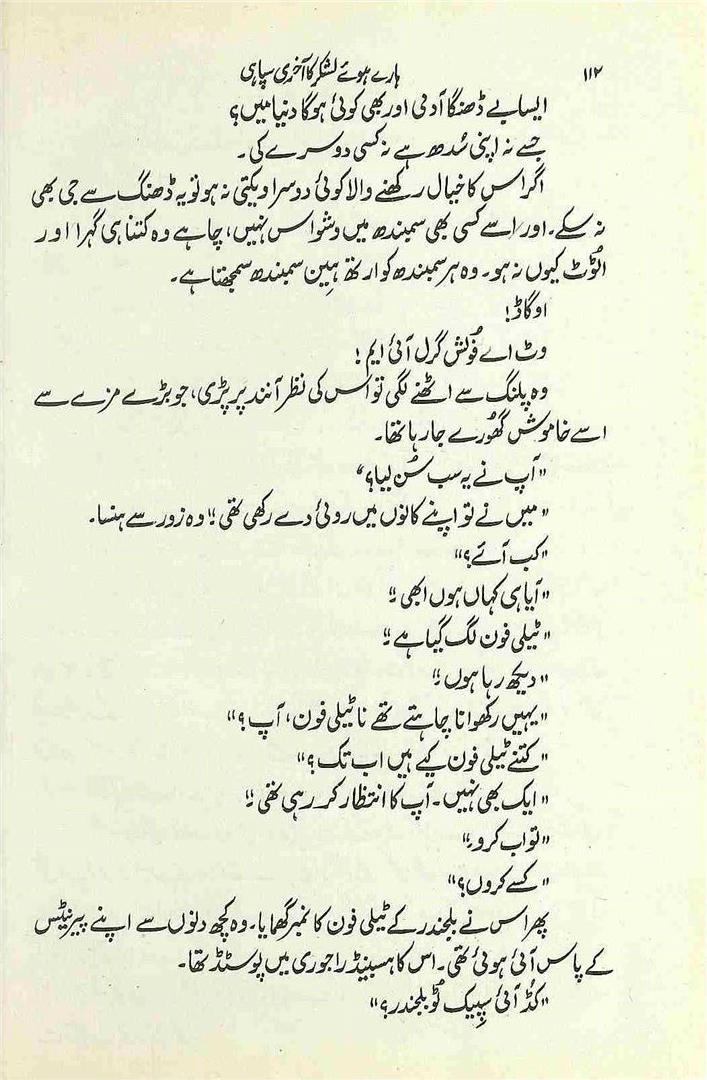 ۱۱۲
ہارے ہوئے لشکر کا آخری سپاہی
ایسا بے ڈھنگا آدمی اور بھی کوئی ہوگا دنیا میں؟
جسے نہ اپنی سُدھ ہے نہ کسی دوسرے کی۔
اگر اس کا خیال رکھنے والا کوئی دوسرا ویکتی نہ ہو تو یہ ڈھنگ سے جی بھی
نہ سکے۔ اور اسے کسی بھی سمبندھ میں وشواس نہیں، چاہے وہ کتنا ہی گہرا اور
اٹوٹ کیوں نہ ہو۔ وہ ہر سمبندھ کو ارتھ ہین سمبندھ سمجھتا ہے۔
او گاڈ!
وٹ اے فُولش گرل آئی ایم!
وہ پلنگ سے اٹھنے لگی تو اس کی نظر آنند پر پڑی، جو بڑے مزے سے
اسے خاموش گھُورے جا رہا تھا۔
"آپ نے یہ سب سُن لیا؟"
"میں نے تو اپنے کانوں میں روئی دے رکھی تھی۔" وہ زور سے ہنسا۔
"کب آئے؟"
"آیا ہی کہاں ہوں ابھی۔"
"ٹیلی فون لگ گیا ہے۔"
"دیکھ رہا ہوں۔"
"یہیں رکھوانا چاہتے تھے نا ٹیلی فون، آپ؟"
"کتنے ٹیلی فون کیے ہیں اب تک؟"
"ایک بھی نہیں۔ آپ کا انتظار کر رہی تھی۔"
"تو اب کرو۔"
"کسے کروں؟"
پھر اس نے بلجندر کے ٹیلی فون کا نمبر گھمایا۔ وہ کچھ دنوں سے اپنے پیرنیٹس
کے پاس آئی ہوئی تھی۔ اس کا ہسبینڈ راجوری میں پوسٹڈ تھا۔
"کُڈ آئی سپیک ٹُو بلجندر؟"